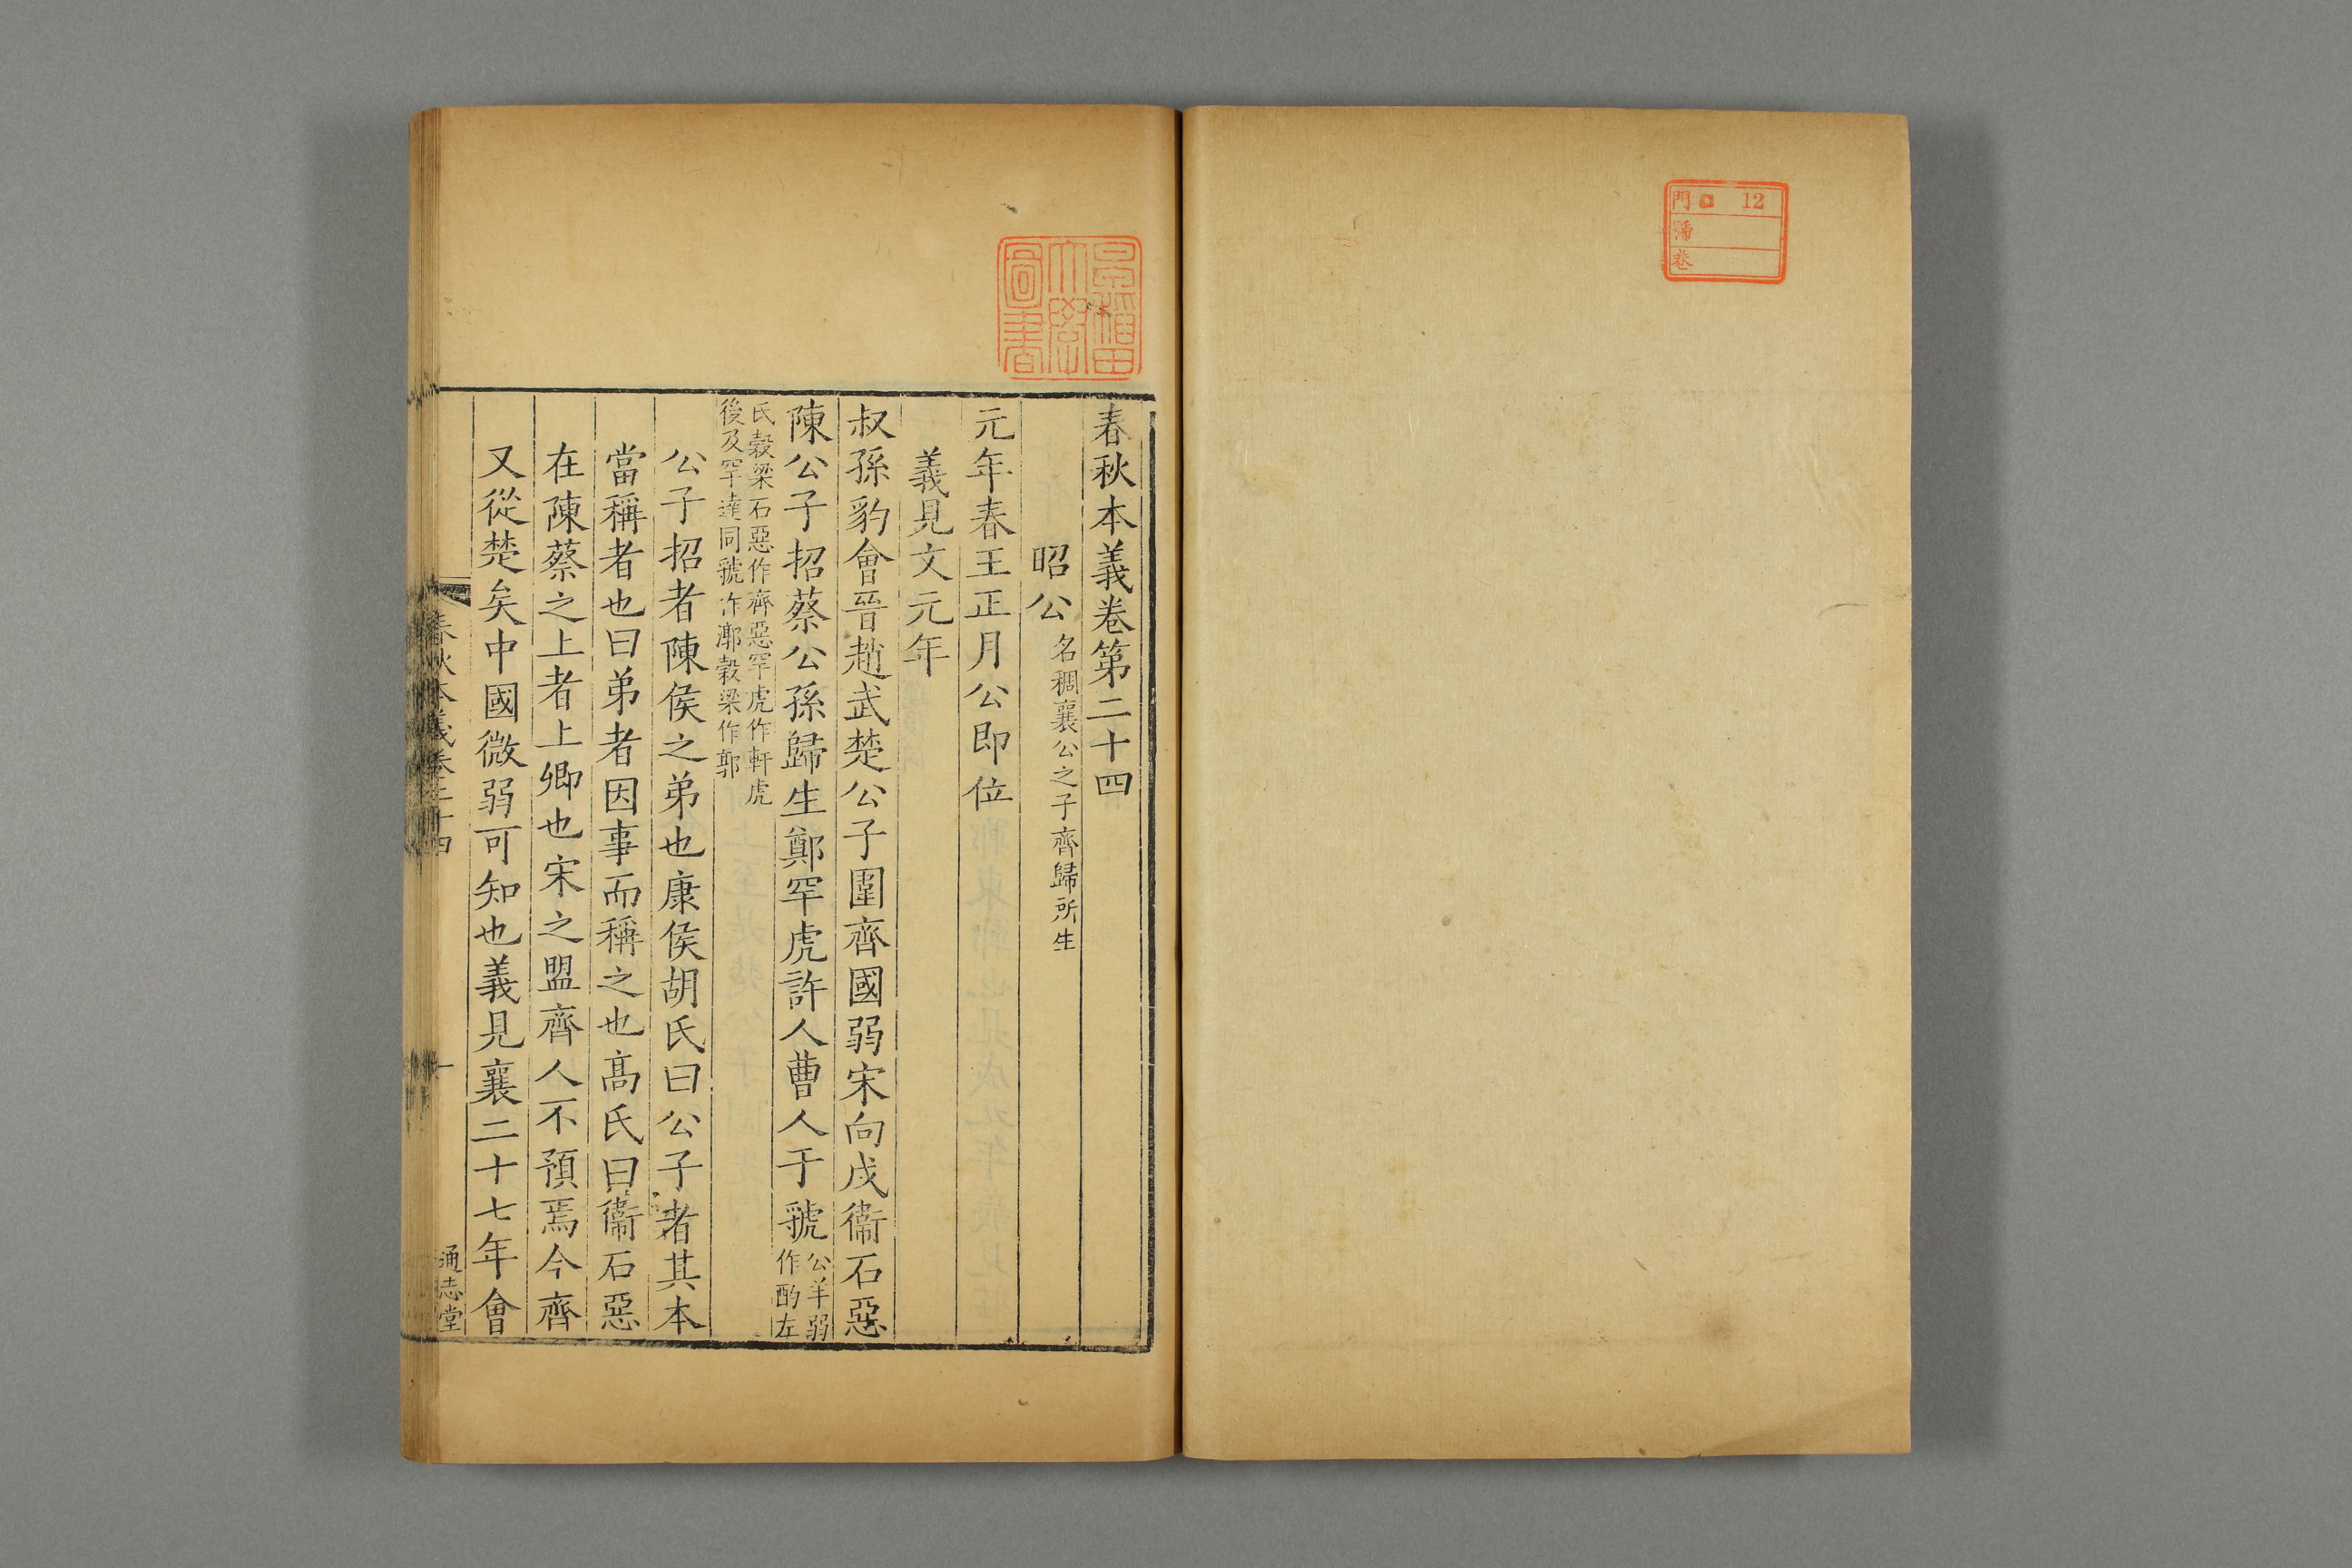 門ロ 12
號
卷
早稲田
大學
圖書
春秋本義卷第二十四
昭公 名稠襄公之子齊歸所生
元年春王正月公即位
義見文元年
叔孫豹會晉趙武楚公子圍齊國弱宋向戌衞石惡
陳公子招蔡公孫歸生鄭罕虎許人曹人于虢 公羊弱
作酌左
氏穀梁石惡作齊惡罕虎作軒虎
後及罕達同虢作漷穀梁作郭
公子招者陳侯之弟也康侯胡氏曰公子者其本
當稱者也曰弟者因事而稱之也髙氏曰衞石惡
在陳蔡之上者上卿也宋之盟齊人不預焉今齊
又從楚矣中國微弱可知也義見襄二十七年會
春秋本義卷二十四
一
通志堂